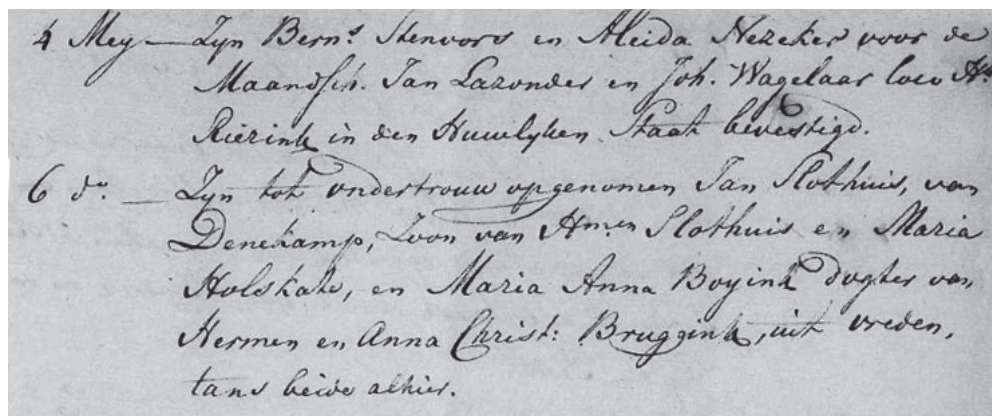 4 Mey — Zyn Bern.s Stenvors en Aleida Nezeker voor de
Maandsch. Jan Lazonder en Joh. Wagelaar loco H.s
Rierink in den Huwlyken Staat bevestigd.
6 do. — Zyn tot ondertrouw opgenomen Jan Slothuis, van
Denekamp, Zoon van Hmen Slothuis en Maria
Holskate, en Maria Anna Boyink dogter van
Hermen en Anna Christ: Bruggink, uit vreden,
tans beide alhier.